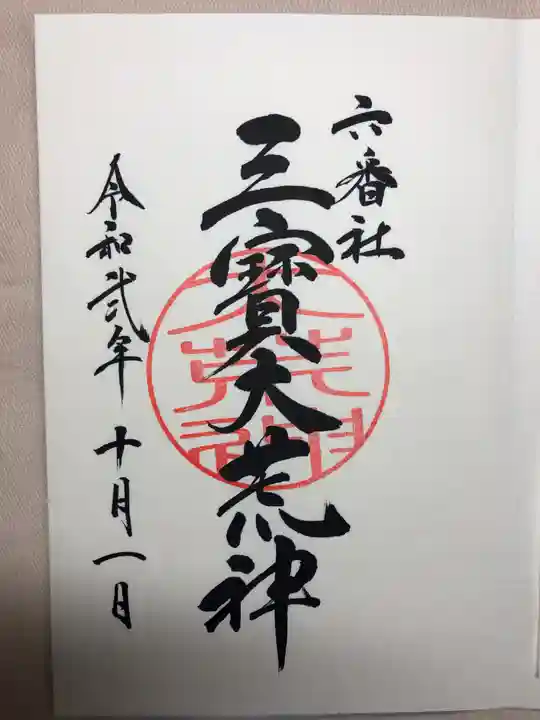 六番社
三寳大荒神
令和弐年十月一日